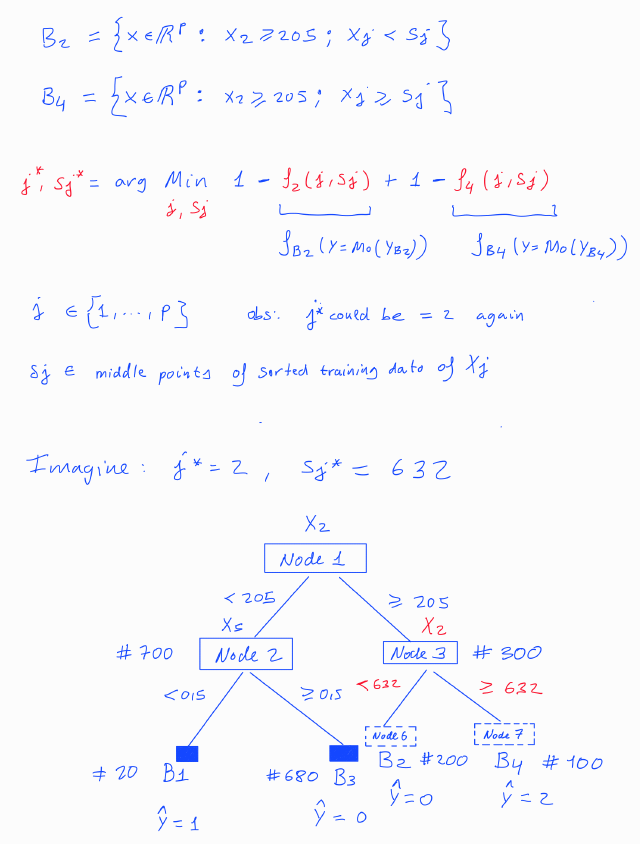 B2 = {x ∈ ℝᴾ : x2 ≥ 205 ; xj < sj}
B4 = {x ∈ ℝᴾ : x2 ≥ 205 ; xj ≥ sj}
j*, sj* = arg Min 1 - f2(j,sj) + 1 - f4(j,sj)
j, sj
fB2(Y=Mo(YB2)) fB4(Y=Mo(YB4))
j ∈ {1,...,P} obs: j* could be = 2 again
sj ∈ middle points of sorted training data of Xj
Imagine: j* = 2, sj* = 632
X2
Node 1
< 205 ≥ 205
X5 X2
# 700 Node 2 Node 3 # 300
<0,5 ≥0,5 <632 ≥ 632
Node 6 Node 7
# 20 B1 #680 B3 B2 #200 B4 #100
Ŷ=1 Ŷ=0 Ŷ=0 Ŷ=2